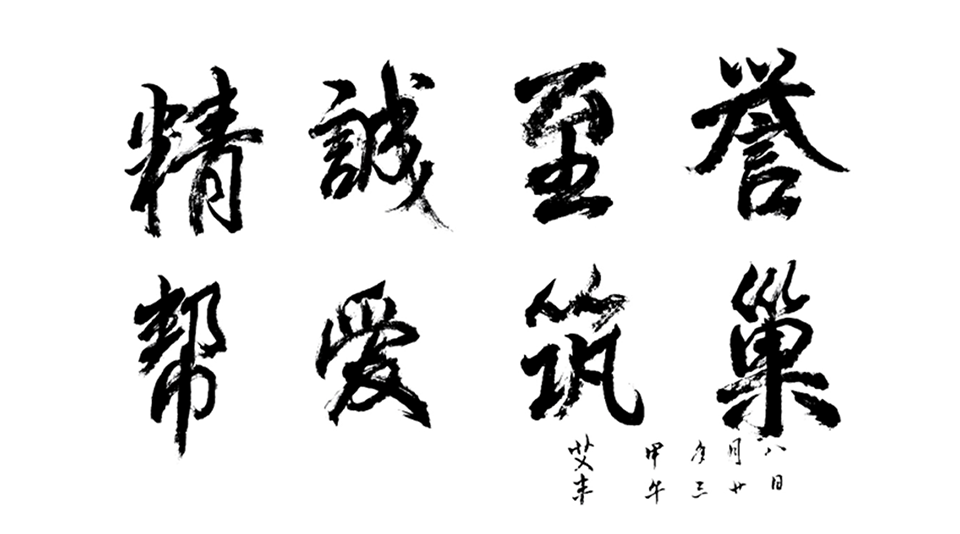 精誠至誉
帮愛筑巢
艾丰
甲午
年三
月廿
八日